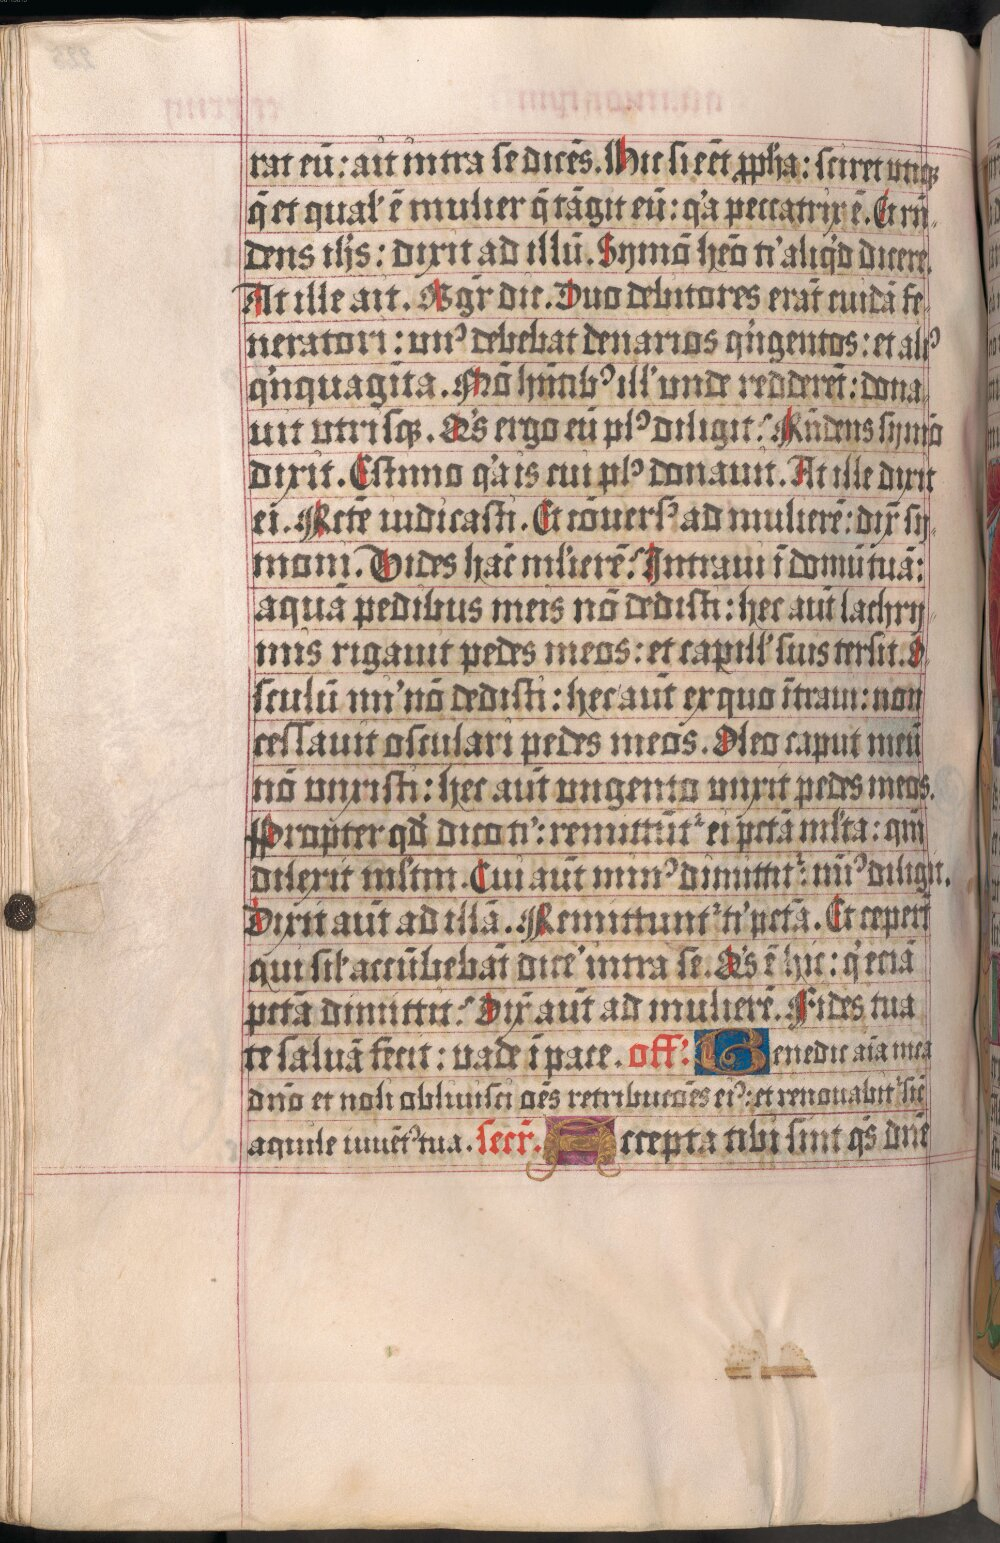 rat eū: ait intra se dicēs. Hic si eēt ꝓpha: sciret utiqꝫ
q̄ et qual' ē mulier q̄ tāgit eū: q'a peccatrix ē. Et rn̄-
dens ih̄s: dixit ad illū. Symō heō ti' aliq'd dicere.
At ille ait. Mgr̄ dic. Duo debitores erāt cuidā fe-
neratori: unꝰ debebat denarios q'ngentos: et aliꝰ
q'nquaginta. Nō hn̄tibꝰ ill' unde redderēt: dona-
uit utrisqꝫ. Q's ergo eū plꝰ diligit? Rn̄dens symō
dixit. Estimo q'a is cui plꝰ donauit. At ille dixit
ei. Recte iudicasti. Et cōuersꝰ ad mulierē: dix̄ sy-
moni. Vides hāc mlierē? Intraui ī domū tuā:
aquā pedibus meis nō dedisti: hec aūt lachry-
mis rigauit pedes meos: et capill' suis tersit. O-
sculū mi' nō dedisti: hec aūt ex quo ītraui: non
cessauit osculari pedes meos. Oleo caput meū
nō unxisti: hec aūt ungento unxit pedes meos.
Propter qd̄ dico ti': remittūt᷑ ei pctā mlta: qm̄
dilexit mltm. Cui aūt minꝰ dimittit᷑: mīꝰ diligit.
Dixit aūt ad illā. Remittunt᷑ ti' pctā. Et ceperūt
qui sil' accūbebāt dice' intra se. Q's ē hic: q' eciā
pctā dimittit? Dix̄ aūt ad mulierē. Fides tua
te saluā fecit: uade ī pace. off'. Benedic aīa mea
dn̄o et noli obliuisci oēs retribucōēs eiꝰ: et renouabit᷑ sic̄
aquile iuuētꝰ tua. secr̄. Accepta tibi sint q̄s dn̄e